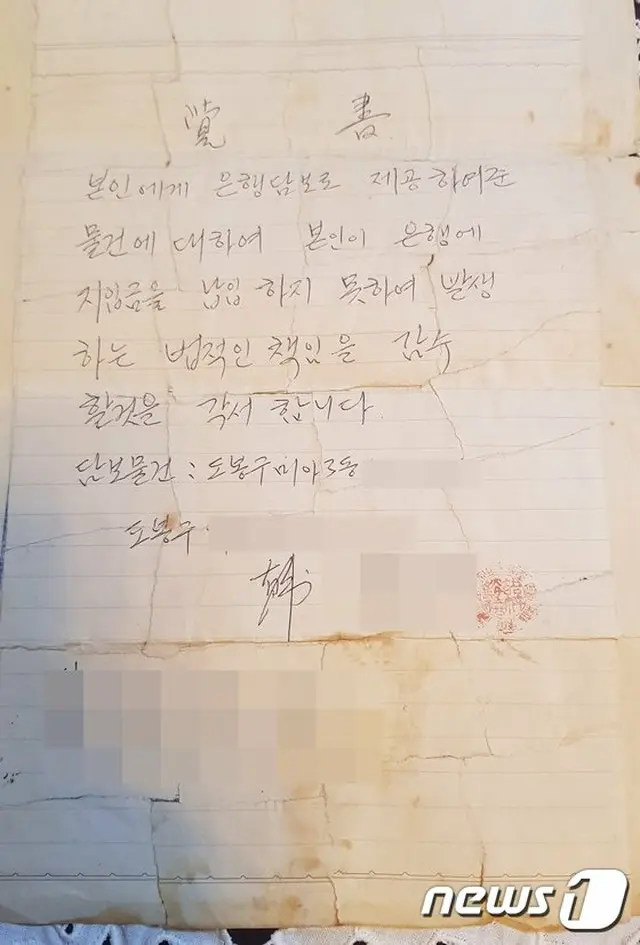 覚 書
본인에게 은행담보로 제공하여준
물건에 대하여 본인이 은행에
지입금을 납입 하지 못하여 발생
하는 법적인 책임을 감수
할것을 각서 합니다.
담보물건 : 도봉구 미아3동
도봉구
韓
news1